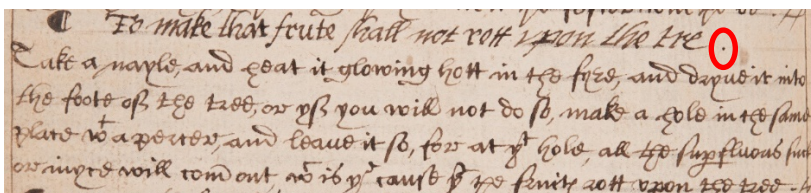 To make that frute shall not rott upon the tre .
Take a nayle, and heat it glowing hott in the fyre, and dryve it into
the foote off the tree, or yff you will not do so, make a hole in the same
place wt a percer, and leave it so, for at yt hole, all the supfluous
or iuyce will com out, wc is ye cause yt ye fruite rott upon the tree